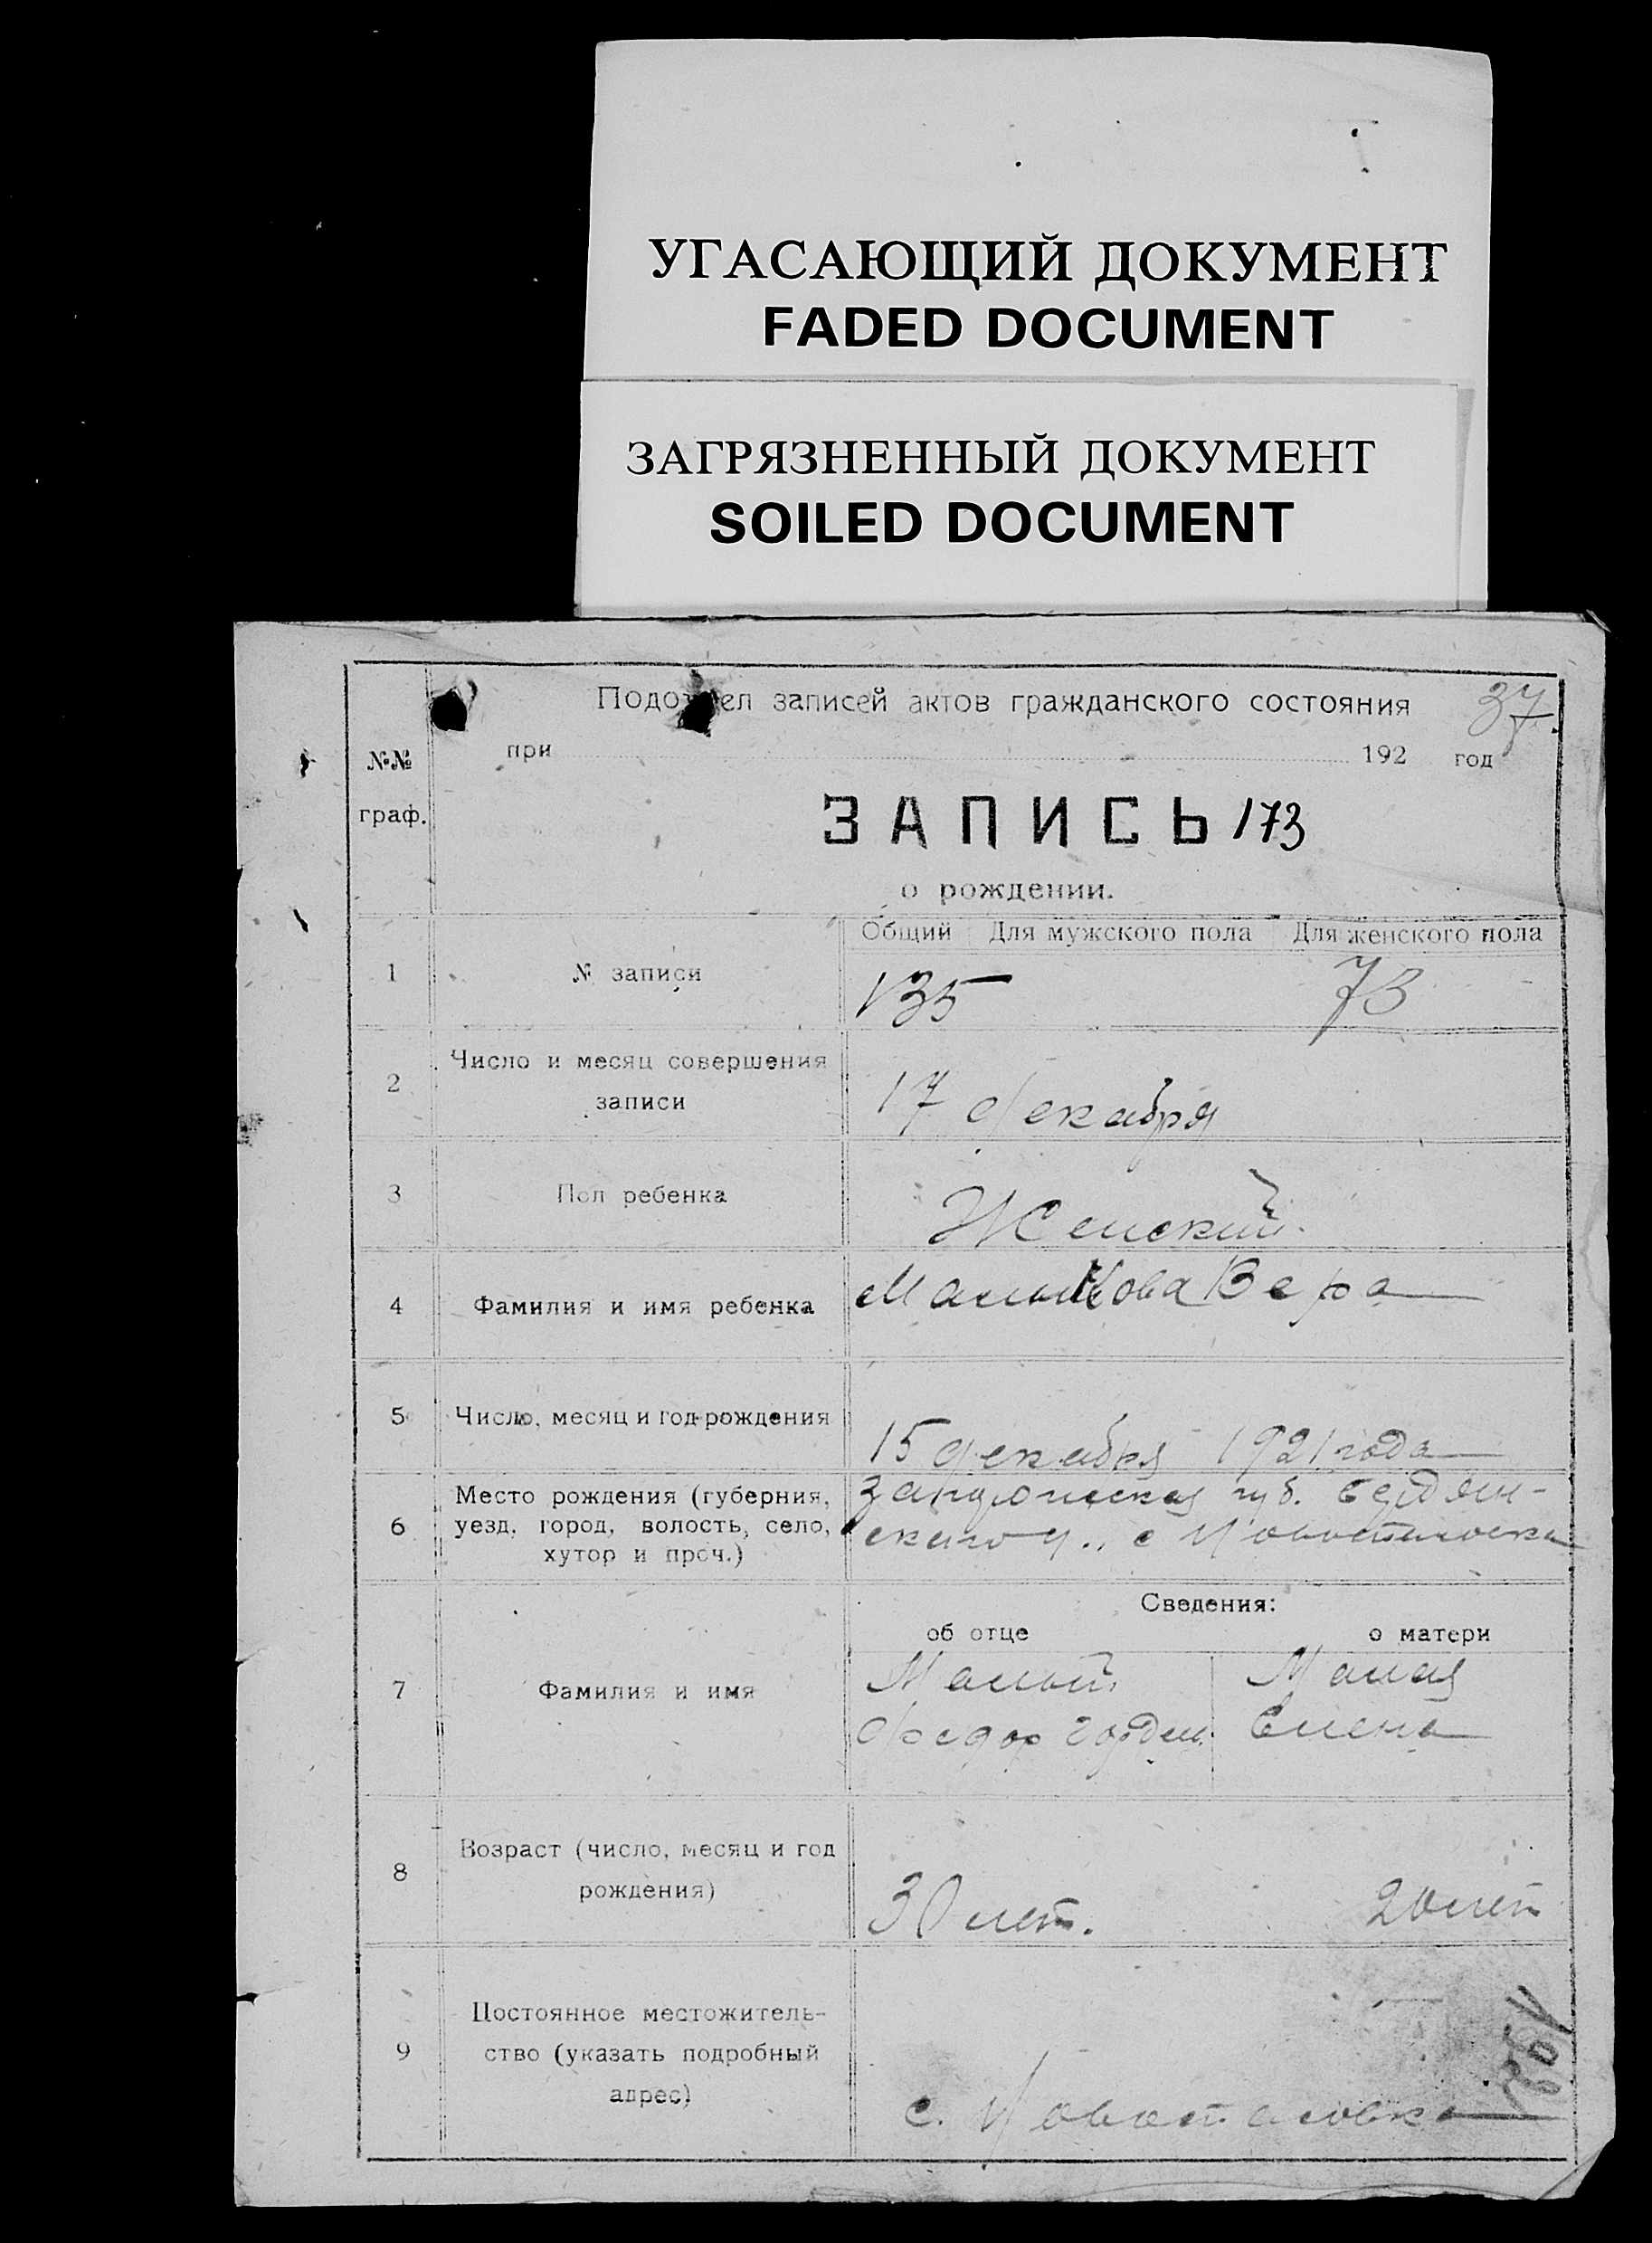 УГАСАЮЩИЙ ДОКУМЕНТ
FADED DOCUMENT
ЗАГРЯЗНЕННЫЙ ДОКУМЕНТ
SOILED DOCUMENT
Подотдел записей актов гражданского состояния 37
при 192 год
№№ граф.
ЗАПИСЬ 173
о рождении.
Общий Для мужского пола Для женского пола
1 № записи 135 73
2 Число и месяц совершения
записи 17 декабря
3 Пол ребенка Женский
4 Фамилия и имя ребенка Вера
5 Число, месяц и год рождения 15 декабря 1921 года
6 Место рождения (губерния,
уезд, город, волость, село,
хутор и проч.)
губ. Бердян-
ского у., с
Сведения:
об отце о матери
7 Фамилия и имя
Малый Малая
Федор Елена
8 Возраст (число, месяц и год
рождения) 30 лет. 20 лет
9 Постоянное местожитель-
ство (указать подробный
адрес)
с.